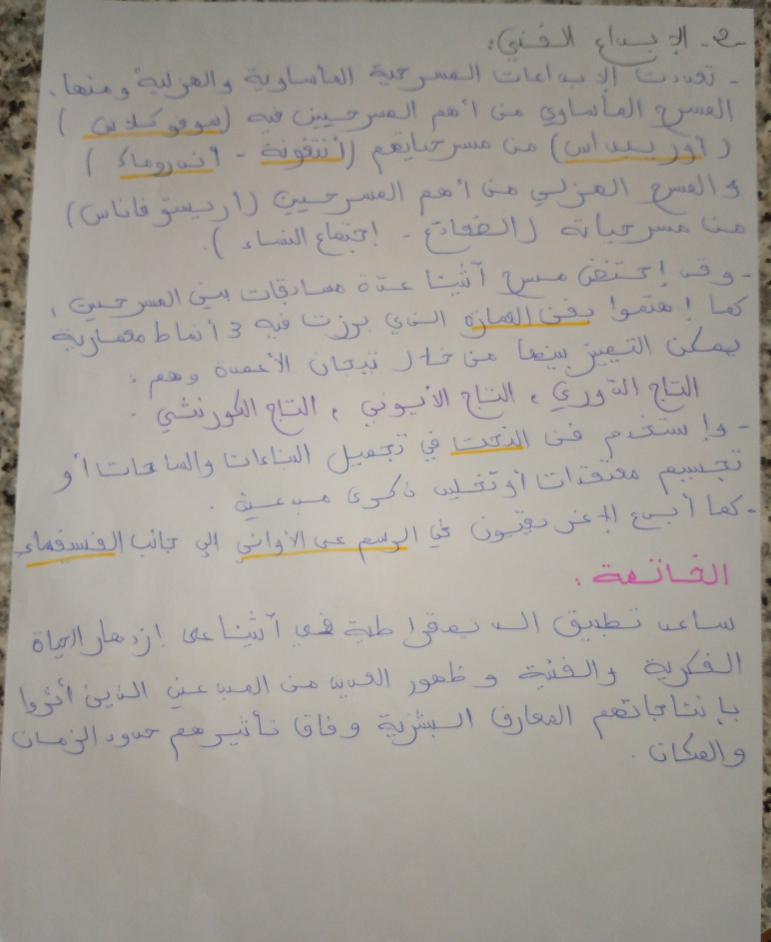 -2- الإبداع الفني:
- تعددت الإبداعات المسرحية المأساوية والهزلية ومنها:
المسرح المأساوي من أهم المسرحيين فيه (سوفوكلاس)
(أوريبيداس) من مسرحياتهم (أنتقونة - أندروماك)
و المسرح الهزلي من أهم المسرحيين (أريستوفاناس)
من مسرحياته (الضفادع - إجتماع النساء).
- وقد إحتضن مسرح أثينا عدة مسابقات بين المسرحيين،
كما إهتموا بفن العمارة الذي برزت فيه 3 أنماط معمارية
يمكن التمييز بينها من خلال تيجان الأعمدة وهم:
التاج الدوري، التاج الأيوني، التاج الكورنثي.
- وإستخدم فن النحت في تجميل البناءات والساحات أو
تجسيم معتقدات أو تخليد ذكرى مبدعين.
- كما أبدع الإغريقيون في الرسم على الأواني إلى جانب الفسيفساء
الخاتمة:
ساعد تطبيق الديمقراطية في أثينا على إزدهار الحياة
الفكرية والفنية و ظهور العديد من المبدعين الذين أثروا
بإنتاجاتهم المعارف البشرية وفاق تأثيرهم حدود الزمان
والمكان.